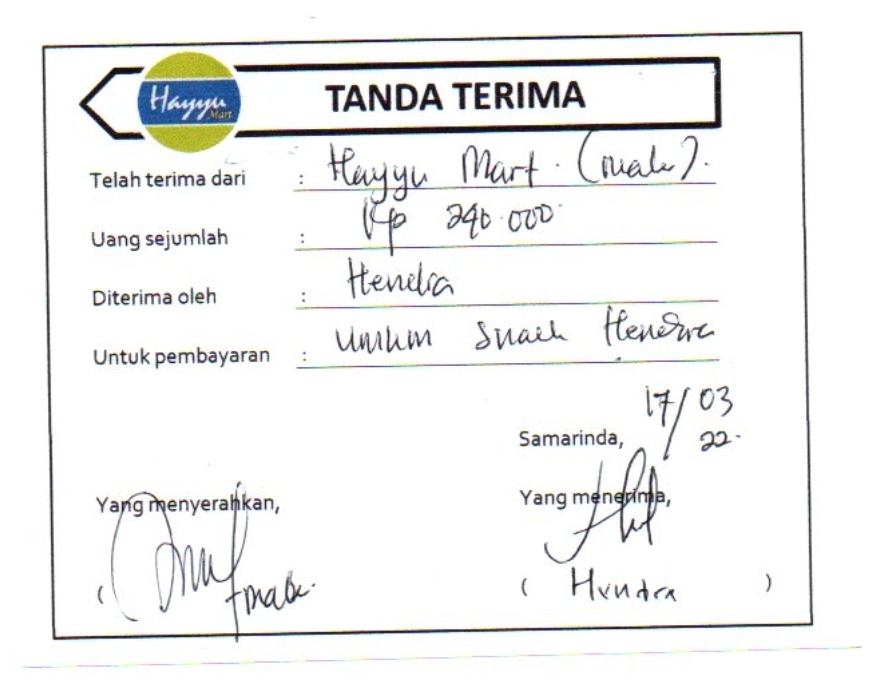 Hayyu Mart
TANDA TERIMA
Telah terima dari : Hayyu Mart.
Uang sejumlah : Rp 240.000
Diterima oleh : Hendra
Untuk pembayaran : Umkm Snack Hendra
17/03
Samarinda, 22.
Yang menyerahkan, Yang menerima,
( ( Hendra )